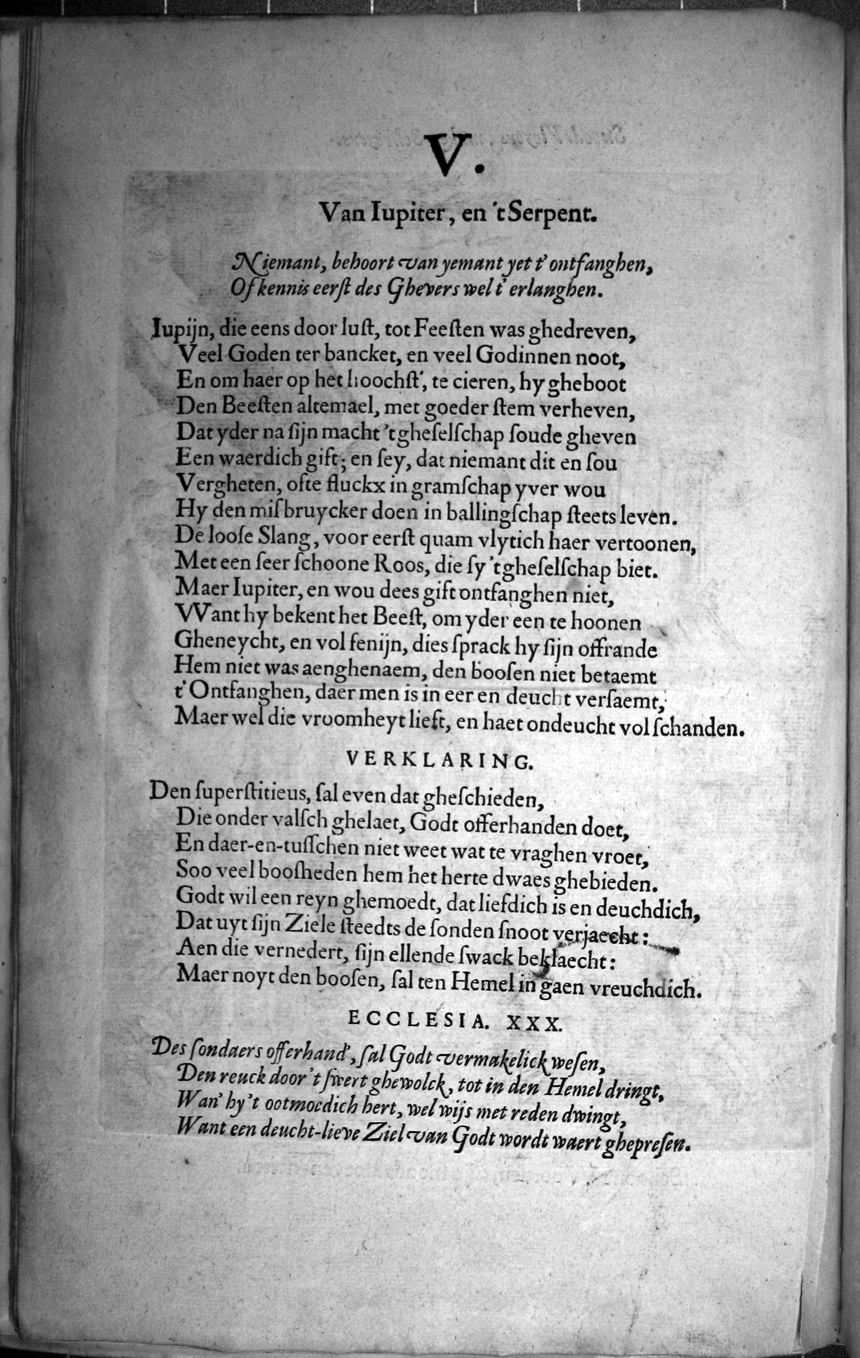 V.
Van Iupiter, en 't Serpent.
Niemant, behoort van yemant yet t' ontfanghen,
Of kennis eerst des Ghevers wel t' erlanghen.
Iupijn, die eens door lust, tot Feesten was ghedreven,
Veel Goden ter bancket, en veel Godinnen noot,
En om haer op het hoochst', te cieren, hy gheboot
Den Beesten altemael, met goeder stem verheven,
Dat yder na sijn macht 't gheselschap soude gheven
Een waerdich gift; en sey, dat niemant dit en sou
Vergheten, ofte fluckx in gramschap yver wou
Hy den misbruycker doen in ballingschap steets leven.
De loose Slang, voor eerst quam vlytich haer vertoonen,
Met een seer schoone Roos, die sy 't gheselschap biet.
Maer Iupiter, en wou dees gift ontfanghen niet,
VVant hy bekent het Beest, om yder een te hoonen
Gheneycht, en vol fenijn, dies sprack hy sijn offrande
Hem niet was aenghenaem, den boosen niet betaemt
t' Ontfanghen, daer men is in eer en deucht versaemt,
Maer wel die vroomheyt lieft, en haet ondeucht vol schanden.
VERKLARING.
Den superstitieus, sal even dat gheschieden,
Die onder valsch ghelaet, Godt offerhanden doet,
En daer-en-tusschen niet weet wat te vraghen vroet,
Soo veel boosheden hem het herte dwaes ghebieden.
Godt wil een reyn ghemoedt, dat liefdich is en deuchdich,
Dat uyt sijn Ziele steedts de sonden snoot verjaecht:
Aen die vernedert, sijn ellende swack beklaecht:
Maer noyt den boosen, sal ten Hemel in gaen vreuchdich.
ECCLESIA. XXX.
Des sondaers offerhand', sal Godt vermakelick wesen,
Den reuck door 't swert ghewolck, tot in den Hemel dringt,
Wan' hy 't ootmoedich hert, wel wijs met reden dwingt,
Want een deucht-lieve Ziel van Godt wordt waert ghepresen.